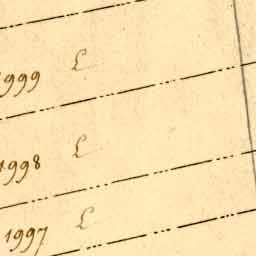 1999 L
1998 L
1997 L